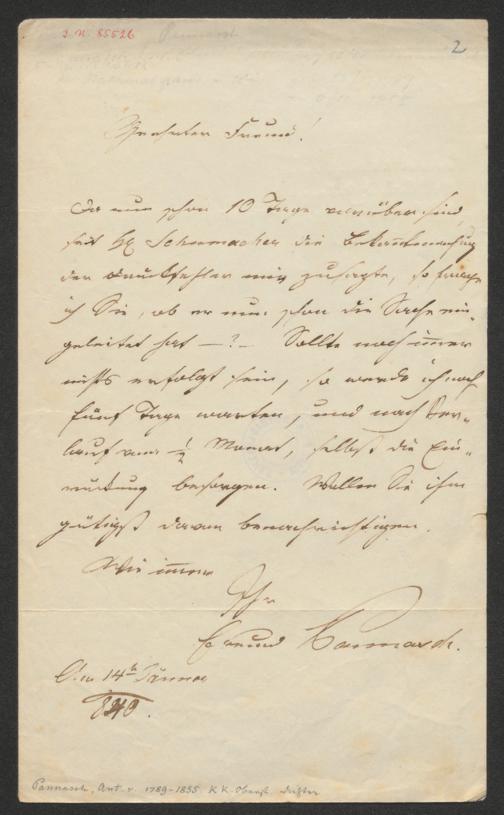 I.N. 85526
2
Geehrter Freund!
Da nun schon 10 Tage vorüber sind,
seit Hr Schumacher die Bekanntmachung
der Druckfehler mir zusagte, so frage
ich Sie, ob er nun schon die Sache ein-
geleitet hat – ? – Sollte noch immer
nichts erfolgt sein, so werde ich noch
fünf Tage warten, und nach Ver-
lauf von ½ Monat, selbst die Ein-
besorgen. Wollen Sie ihm
gütigst davon benachrichtigen.
Wie immer
Ihr
Freund Pannasch.
Den 14t Jänner
840.
Pannasch, Ant. v. 1789-1855 K K Oberst Dichter